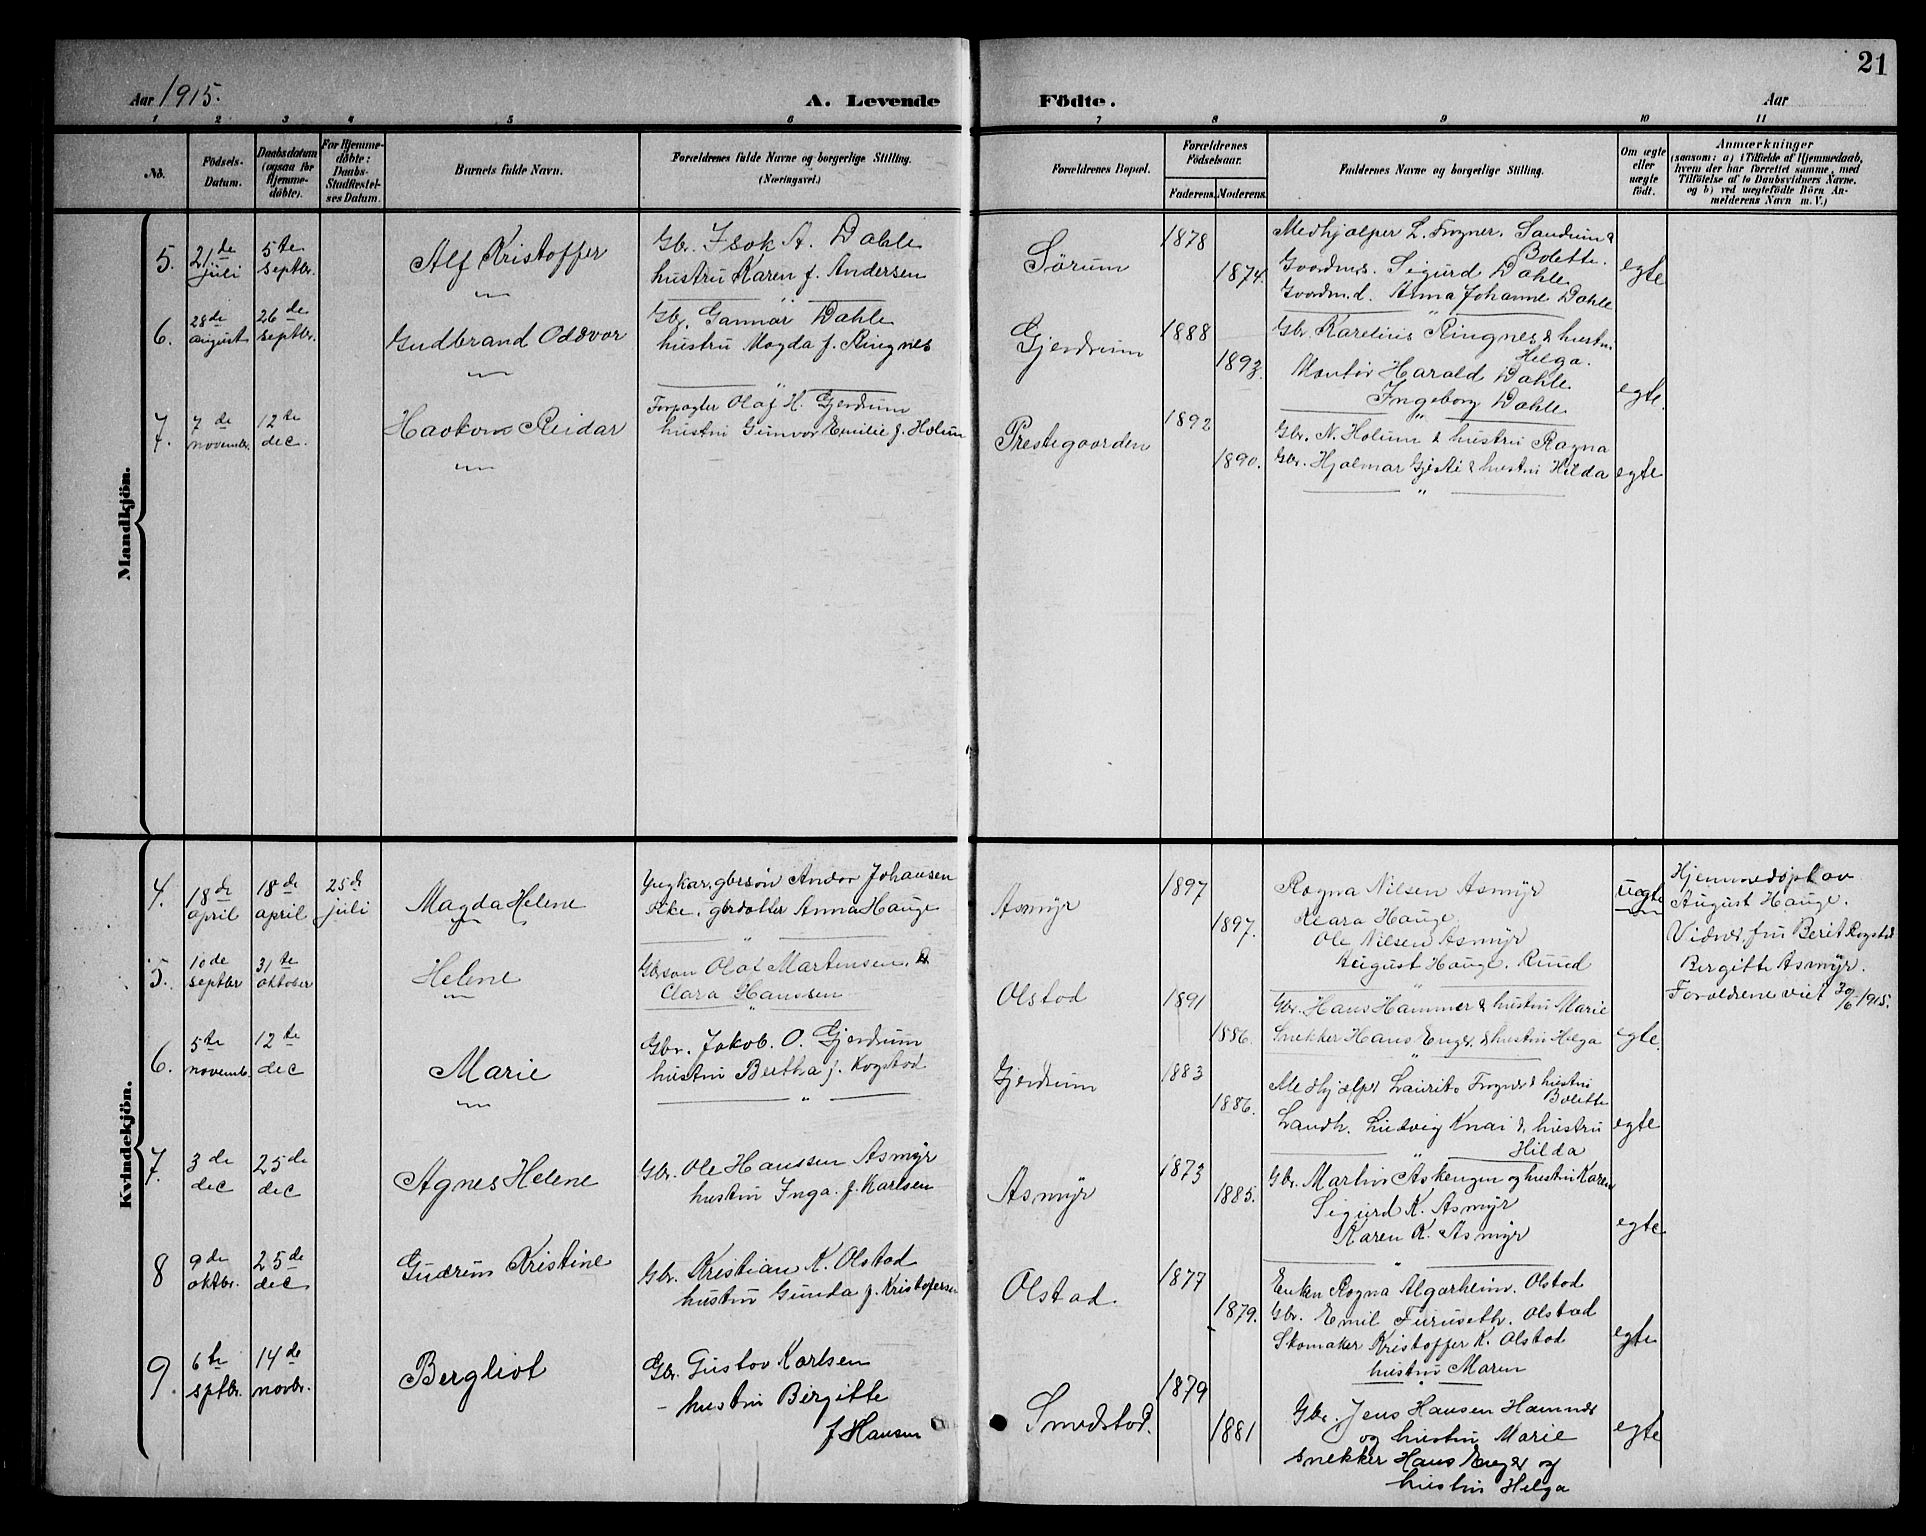 21
Aar 1915.
A. Levende Födte.
Aar
1 2 3 4 5 6 7 8 9 10 11
No.
Födsels-Datum.
Daabsdatum (ogsaa for Hjemme-döbte).
For Hjemme-döbte: Daabs-Stadfæstel-ses Datum.
Barnets fulde Navn.
Forældrenes fulde Navne og borgerlige Stilling. (Næringsvei.)
Forældrenes Bopæl.
Forældrenes Födselsaar.
Faderens. Moderens.
Faddernes Navne og borgerlige Stilling.
Om ægte eller uægte födt.
Anmærkninger
(saasom: a) i Tilfælde af Hjemmedaab,
hvem der har forrettet samme, med
Tilföielse af to Daabsvidners Navne.
og b) ved uægtefödte Börn An-
melderens Navn m. V.)
Mandkjön.
5. 21de juli 5te septbr. Alf Kristoffer
Gbr. Isak A. Dahle
hustru Karen f. Andersen
Sörum 1878 1874.
Medhjælper L. Frogner, Sandum &
Bolette.
Gaardms. Sigurd Dahle
Gaardm.d. Anna Johanne Dahle
egte
6. 28de august 26de septbr. Gudbrand Oddvar
Gbr. Gunnar Dahle
hustru Magda f. Ringnes
Gjerdrum 1888 1893.
Gbr. Karelius Ringnes & hustru
Helga.
Montör Harald Dahle
Ingeborg Dahle
egte.
7. 7de novembr. 12te dec. Haakon Reidar
Forpagter Olaf H. Gjerdrum
hustru Gunvor Emilie f. Holum
Prestegaarden 1892 1890.
Gbr. N. Holum & hustru Ragna
Gbr. Hjalmar Gjesti & hustru Hilda
egte
Kvindekjön.
4. 18de april 18de april 25de juli Magda Helene
Ungkar, gbrsön Andor Johansen
Pike, gbrdatter Anna Hauge
Asmyr 1897 1897.
Ragna Nilsen Asmyr
Klara Hauge
Ole Nilsen Asmyr
August Hauge. Ruud
uegte
Hjemmedöpt av
August Hauge.
Vidner, fru Berit Rogstad
Bergitte Asmyr.
Foreldrene viet 30/6 1915.
5. 10de septbr 31te oktober Helene
Gbrsön Olaf Martensen.
Clara Hanssen
Olstad 1891 1886.
Gbr. Hans Hammer & hustru Marie
Snekker Hans Enger & hustru Helga
egte.
6. 5te novemb. 12te dec Marie
Gbr. Jakob. O. Gjerdrum
hustru Bertha f. Rogstad
Gjerdrum 1883 1886.
Medhjælper Laurits Frogner & hustru
Bolette
Landh. Ludvig Knai & hustru
Hilda
egte
7. 3de dec 25de dec Agnes Helene
Gbr. Ole Hanssen Asmyr
hustru Inga. f. Karlsen
Asmyr 1873 1885.
Gbr. Martin Askengen og hustru Karen
Sigurd K. Asmyr
Karen K. Asmyr
egte
8 9de oktbr. 25de dec Gudrun Kristine
Gbr. Kristian K. Olstad
hustru Gunda f. Kristofersen
Olstad. 1877 1879.
Enken Ragna Algarheim. Olstad
Gbr. Emil Furuseth. Olstad
Skomaker Kristoffer K. Olstad
hustru Maren
egte
9. 6te sptbr. 14de novbr. Bergliot
Gbr. Gustav Karlsen
- hustru Birgitte
f Hansen
Smedstad. 1879 1881
Gbr. Jens Hansen Hammer
og hustru Marie
snekker Hans Enger og
hustru Helga
egte